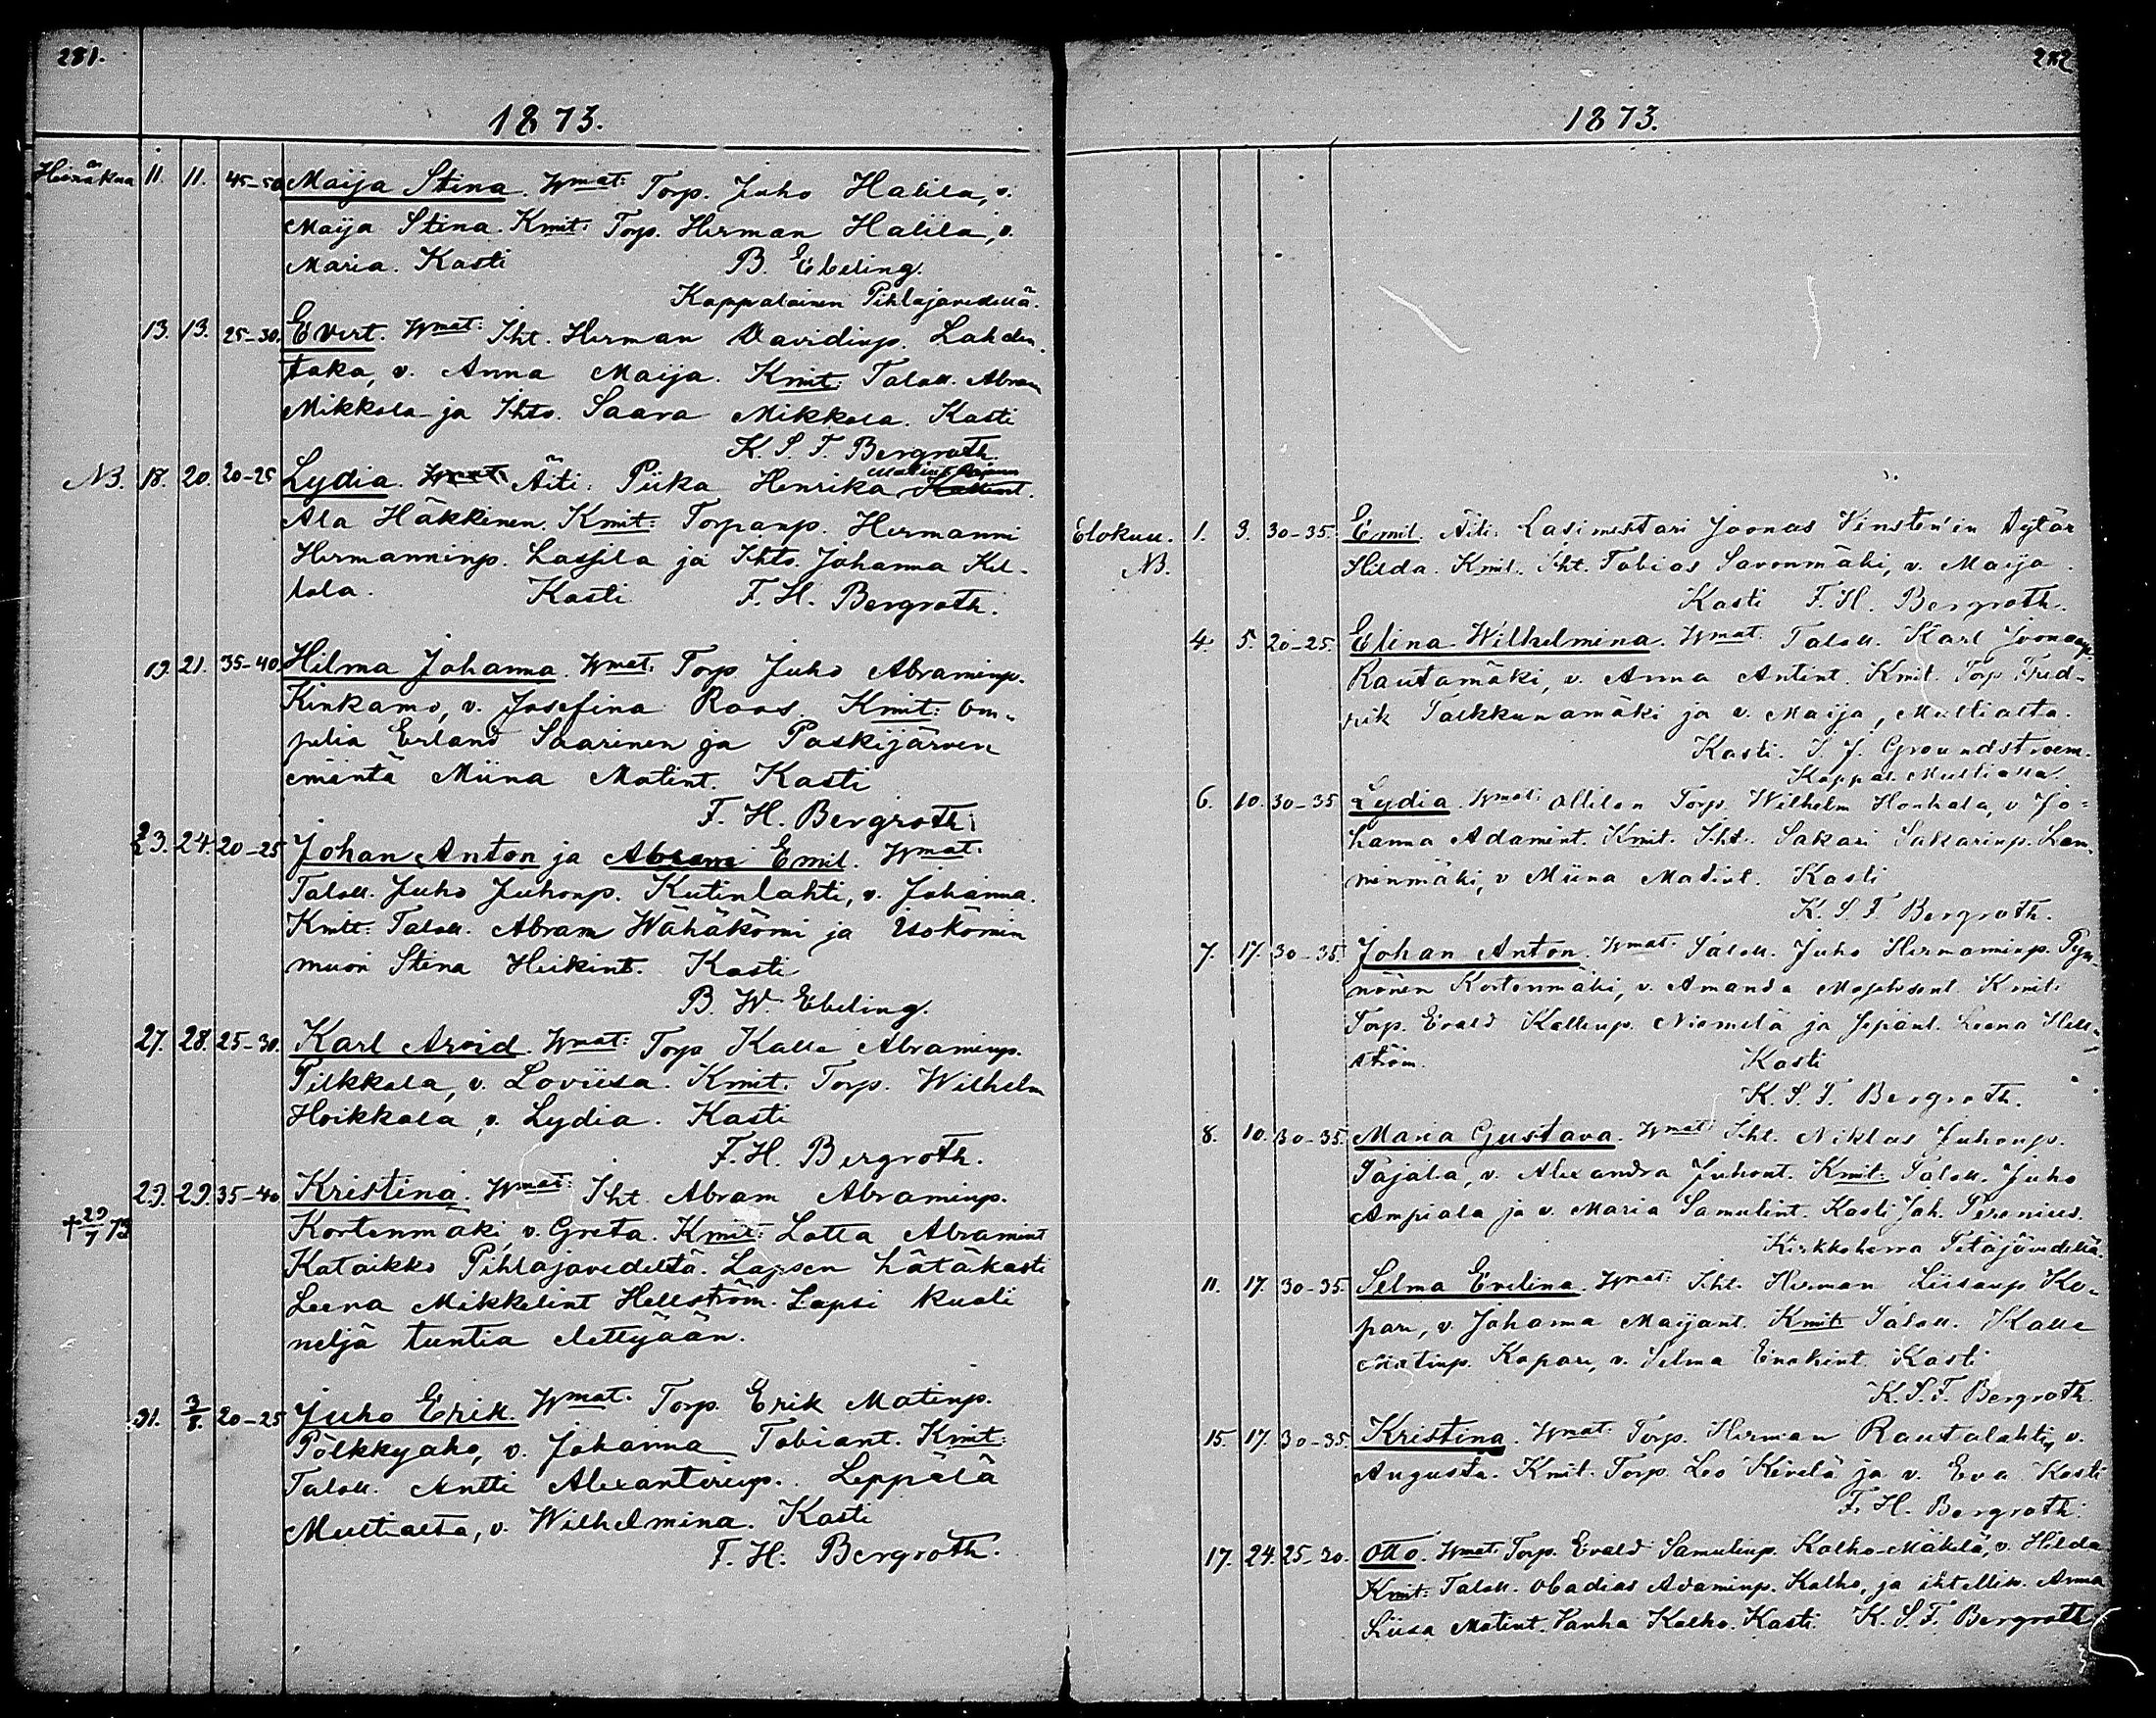 281.
1873.
Heinäkuu 11. 11. 45-50 Maija Stina. Wmat: Torp. Juho Halila, v.
Maija Stina. Kmit: Torp. Herman Halila, v.
Maria. Kasti B. Ebeling.
Kappalainen Pihlajavedellä.
13. 13. 25-30. Evert. Wmat: Iht. Herman Davidinp. Lahden
taka, v. Anna Maija. Kmit: Taloll. Abram
Mikkola ja Ihto. Saara Mikkola. Kasti
K. S. F. Bergroth.
NB. 18. 20. 20-25 Lydia. Wmat: Äiti: Piika Henrika
Ala Häkkinen. Kmit: Torpanp. Hermanni
Hermanninp. Lassila ja Ihto. Johanna Kil-
lola. Kasti F. H. Bergroth.
19. 21. 35-40 Hilma Johanna. Wmat: Torp Juho Abraminp.
Kinkamo, v. Josefina Roos. Kmit: Om-
pelia Erland Saarinen ja Paskijärven
emäntä Miina Matint. Kasti
F. H. Bergroth.
23. 24. 20-25 Johan Anton ja Abram Emil. Wmat:
Taloll. Juho Juhonp. Kutinlahti, v. Johanna.
Kmit: Taloll. Abram Wähäkömi ja Isokömin
muori Stina Heikint. Kasti
B. W. Ebeling.
27. 28. 25-30. Karl Arvid. Wmat: Torp Kalle Abraminp.
Pilkkala, v. Loviisa. Kmit: Torp. Wilhelm
Hoikkala, v. Lydia. Kasti
F. H. Bergroth.
29. 29. 35-40 Kristina. Wmat: Iht. Abram Abraminp.
+29/7 73 Kortenmäki, v. Greta. Kmit: Lotta Abramint
Kataikko Pihlajavedeltä. Lapsen hätäkasti
Leena Mikkelint Hellström. Lapsi kuoli
neljä tuntia elettyään.
31. 3/8. 20-25 Juho Erik. Wmat: Torp. Erik Matinp.
Pölkkyaho, v. Johanna Tobiant. Kmit:
Taloll. Antti Alexanterinp. Leppälä
Multialta, v. Wilhelmina. Kasti
F. H. Bergroth.
282
1873.
Elokuu. 1. 3. 30-35. Emil. Äiti: Lasimestari Joonas Vinsten'in tytär
NB. Hilda. Kmit. Iht. Tobias Savonmäki, v. Maija.
Kasti F. H. Bergroth.
4. 5. 20-25. Elina Wilhelmina. Wmat: Taloll. Karl Joonanp.
Rautamäki, v. Anna Antint. Kmit. Torp Fred-
rik Talkkunamäki ja v. Maija, Multialta.
Kasti. I. J. Groundstroem.
Kappal. Multialla.
6. 10. 30-35 Lydia. Wmat: Ollilan Torp. Wilhelm Honkala, v Jo-
hanna Adamint. Kmit. Iht. Sakari Sakarinp. Lam-
minmäki, v Miina Matint. Kasti
K. S. F. Bergroth.
7. 17. 30-35. Johan Anton. Wmat: Taloll. Juho Hermaninp. Pyn-
nönen Kortenmäki, v. Amanda Kmit:
Torp. Evald Kallenp. Niemelä ja Leena Hell-
ström. Kasti
K. S. F. Bergroth.
8. 10. 30-35. Maria Gustava. Wmat: Iht. Niklas Juhonp.
Pajala, v. Alexandra Juhont. Kmit: Taloll. Juho
Ampiala ja v. Maria Samulint. Kasti Joh.
Kirkkoherra Petäjävedellä.
11. 17. 30-35. Selma Evelina. Wmat: Iht. Herman Liisanp Ko-
paru, v. Johanna Maijant. Kmit: Taloll. Kalle
Matinp. Koparu, v. Selma Enokint. Kasti
K. S. F. Bergroth.
15. 17. 30-35. Kristina. Wmat: Torp. Herman Rautalahti, v.
Augusta. Kmit. Torp. Leo Kivelä ja v. Eva Kasti
F. H. Bergroth.
17. 24. 25-30. Otto. Wmat: Torp. Evald Samulinp. Kalho-Mäkelä, v. Hilda
Kmit: Taloll. Obadias Adaminp. Kalho, ja ihtellis. Anna
Liisa Matint. Vanha Kalho. Kasti K. S. F. Bergroth